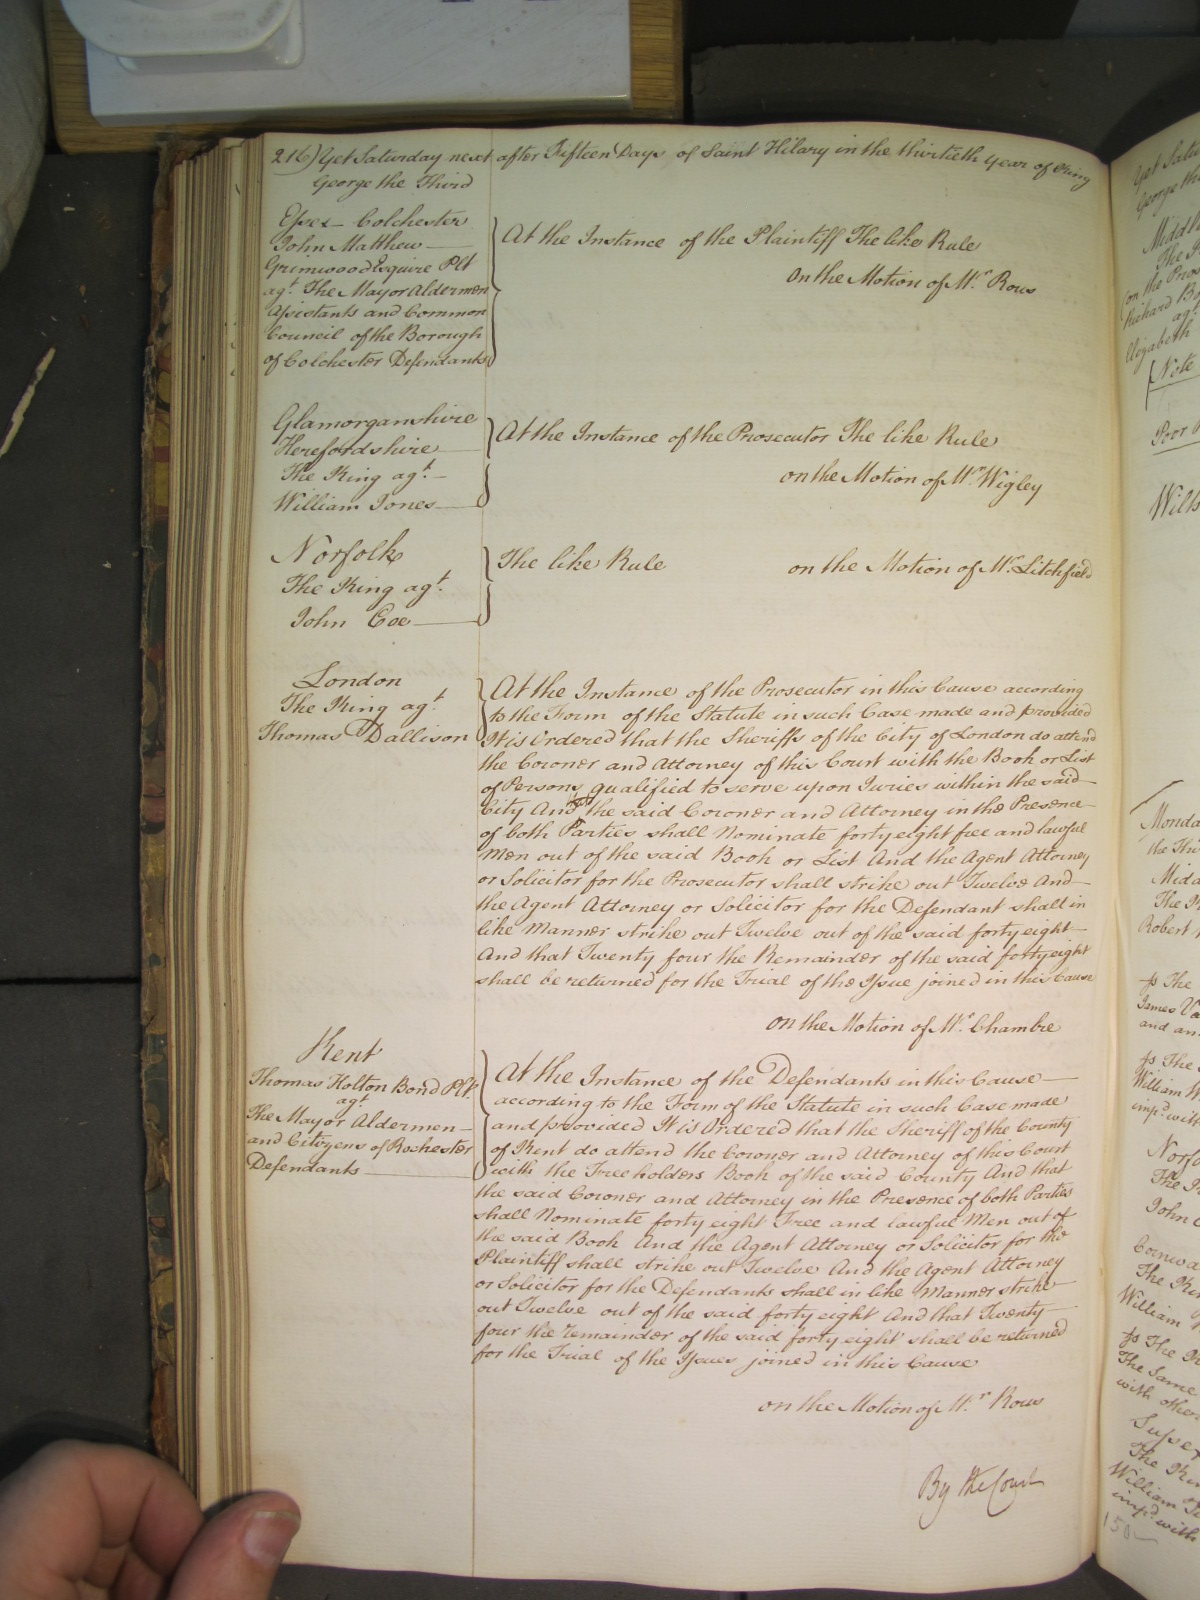 216) Yet Saturday next after Fifteen Days of Saint Hilary in the thirtieth Year of King
George the Third
Essex Colchester
John Matthew
Grimwood Esquire Plt
agt. The Mayor Aldermen
Assistants and Common
Council of the Borough
of Colchester Defendants
At the Instance of the Plaintiff The like Rule
on the Motion of Mr. Rous
Glamorganshire
Herefordshire
The King agt.
William Jones
At the Instance of the Prosecutor The like Rule
on the Motion of Mr. Wigley
Norfolk
The King agt.
John Coe
The like Rule on the Motion of Mr. Litchfield
London
The King agt.
Thomas Dallison
At the Instance of the Prosecutor in this Cause according
to the Form of the Statute in such Case made and provided
It is Ordered that the Sheriffs of the City of London do attend
the Coroner and Attorney of this Court with the Book or List
of Persons qualified to serve upon Juries within the said
City And that the said Coroner and Attorney in the Presence
of both Parties shall Nominate forty eight free and lawful
Men out of the said Book or List And the Agent Attorney
or Solicitor for the Prosecutor shall strike out Twelve And
the Agent Attorney or Solicitor for the Defendant shall in
like Manner strike out Twelve out of the said forty eight
And that Twenty four the Remainder of the said forty eight
shall be returned for the Trial of the Issue joined in this Cause
on the Motion of Mr. Chambre
Kent
Thomas Holton Bond Plt.
agt
The Mayor Aldermen
and Citizens of Rochester
Defendants
At the Instance of the Defendants in this Cause
according to the Form of the Statute in such Case made
and provided It is Ordered that the Sheriff of the County
of Kent do attend the Coroner and Attorney of this Court
with the Freeholders Book of the said County And that
the said Coroner and Attorney in the Presence of both Parties
shall Nominate forty eight Free and lawful Men out of
the said Book And the Agent Attorney or Solicitor for the
Plaintiff shall strike out Twelve And the Agent Attorney
or Solicitor for the Defendants shall in like Manner strike
out Twelve out of the said forty eight And that Twenty
four the remainder of the said forty eight shall be returned
for the Trial of the Issues joined in this Cause
on the Motion of Mr. Rous
By the Court
Yet Satu
George the
Middl
The K
on the Pros
Richard B
agt
Elizabeth
Note
Poor
Wilts
Monda
the Thi
Midd
The K
Robert
The
James Va
and an
The
William W
impd. with
Norfo
The K
John C
Cornwa
The Kin
William
The K
The Same
with other
Sussex
The Kin
William
impd. with
150